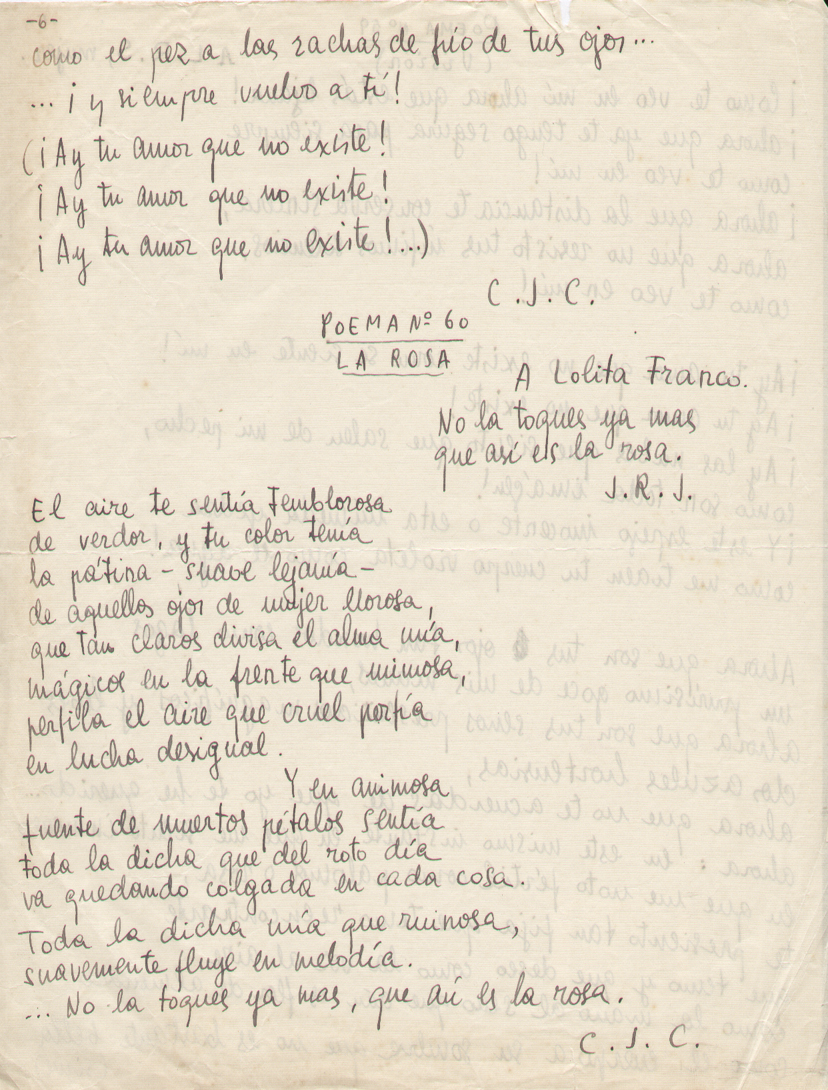 -6-
como el pez a las rachas de frío de tus ojos...
... ¡y siempre vuelvo a tí!
(¡Ay tu amor que no existe!
¡Ay tu amor que no existe!
¡Ay tu amor que no existe!...)
C.J.C.
POEMA Nº 60
LA ROSA
A Lolita Franco.
No la toques ya mas
que así es la rosa.
J.R.J.
El aire te sentía temblorosa
de verdor, y tu color tenía
la pátina - suave lejanía -
de aquellos ojos de mujer llorosa,
que tan claros divisa el alma mía,
mágicos en la frente que mimosa,
perfila el aire que cruel porfía
en lucha desigual.
Y en animosa
fuente de muertos pétalos sentía
toda la dicha que del roto día
va quedando colgada en cada cosa.
Toda la dicha mía que ruinosa,
suavemente fluye en melodía.
... No la toques ya mas, que así es la rosa.
C.J.C.